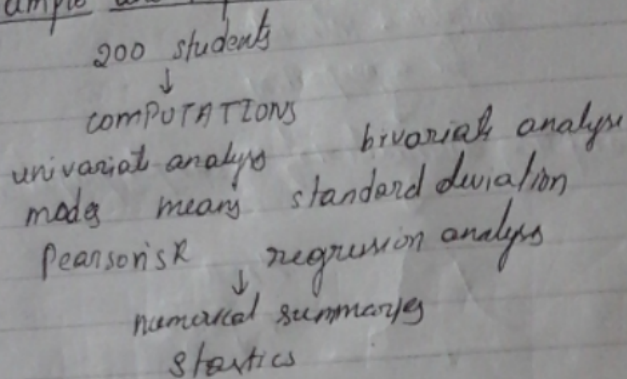 ample and
200 students
↓
COMPUTATIONS
univariat analys bivariate analyse
modes means standard deviation
Pearson's R regression analys
↓
numarical summaries
Stastics